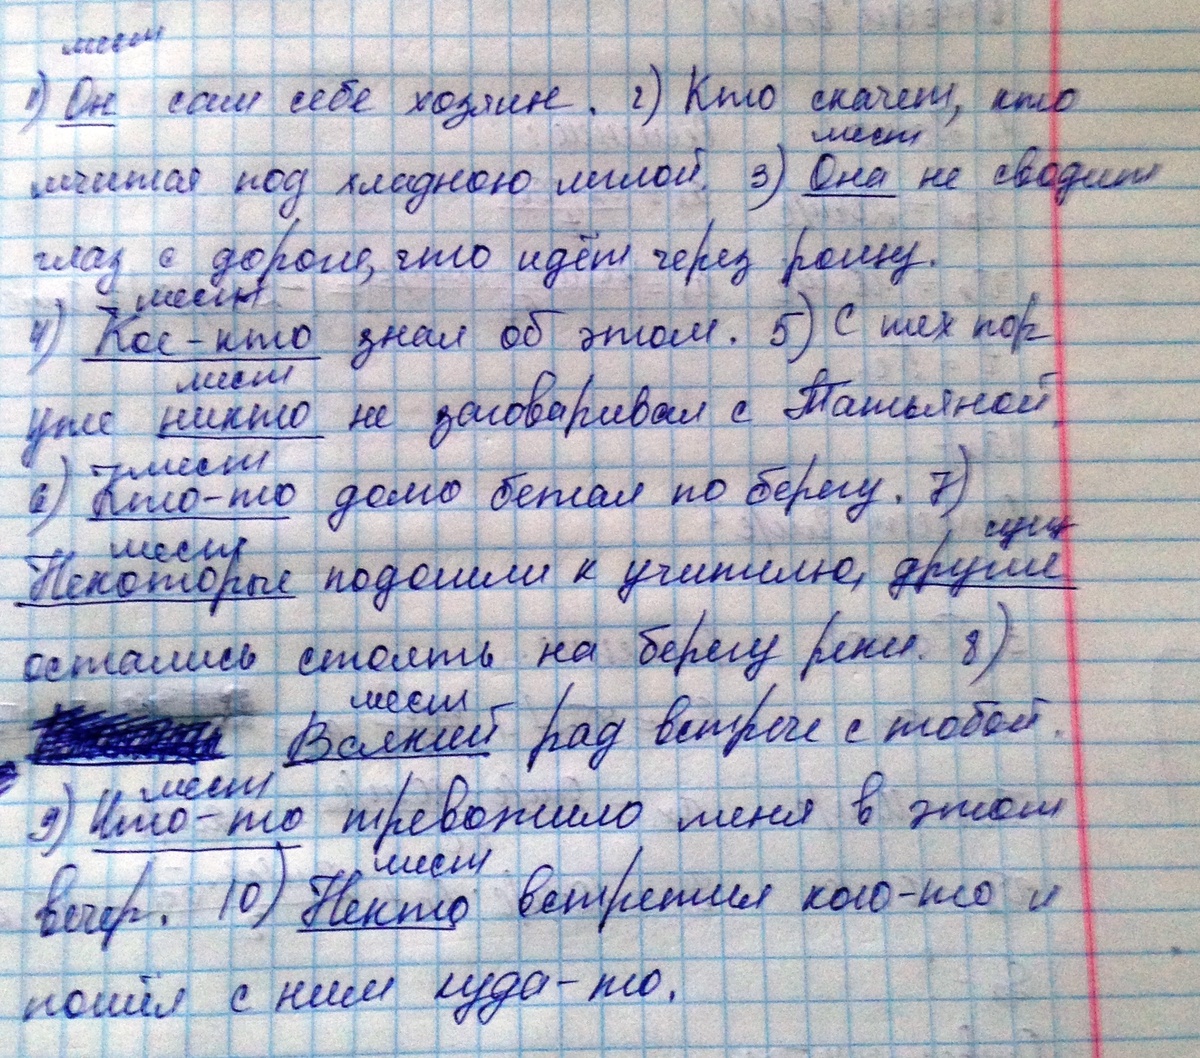 мест
1) Он сам себе хозяин. 2) Кто скачет, кто
мест
мчится под хладною мглой. 3) Она не сводит
глаз с дороги, что идёт через рощу.
мест
4) Кое-кто знал об этом. 5) С тех пор
мест
уже никто не заговаривал с Татьяной.
мест
6) Кто-то долго бежал по берегу. 7)
мест сущ
Некоторые подошли к учителю, другие
остались стоять на берегу реки. 8)
мест
Всякий рад встрече с тобой.
мест
9) Что-то тревожило меня в этом
мест
вечер. 10) Некто встретил кого-то и
пошёл с ним куда-то.